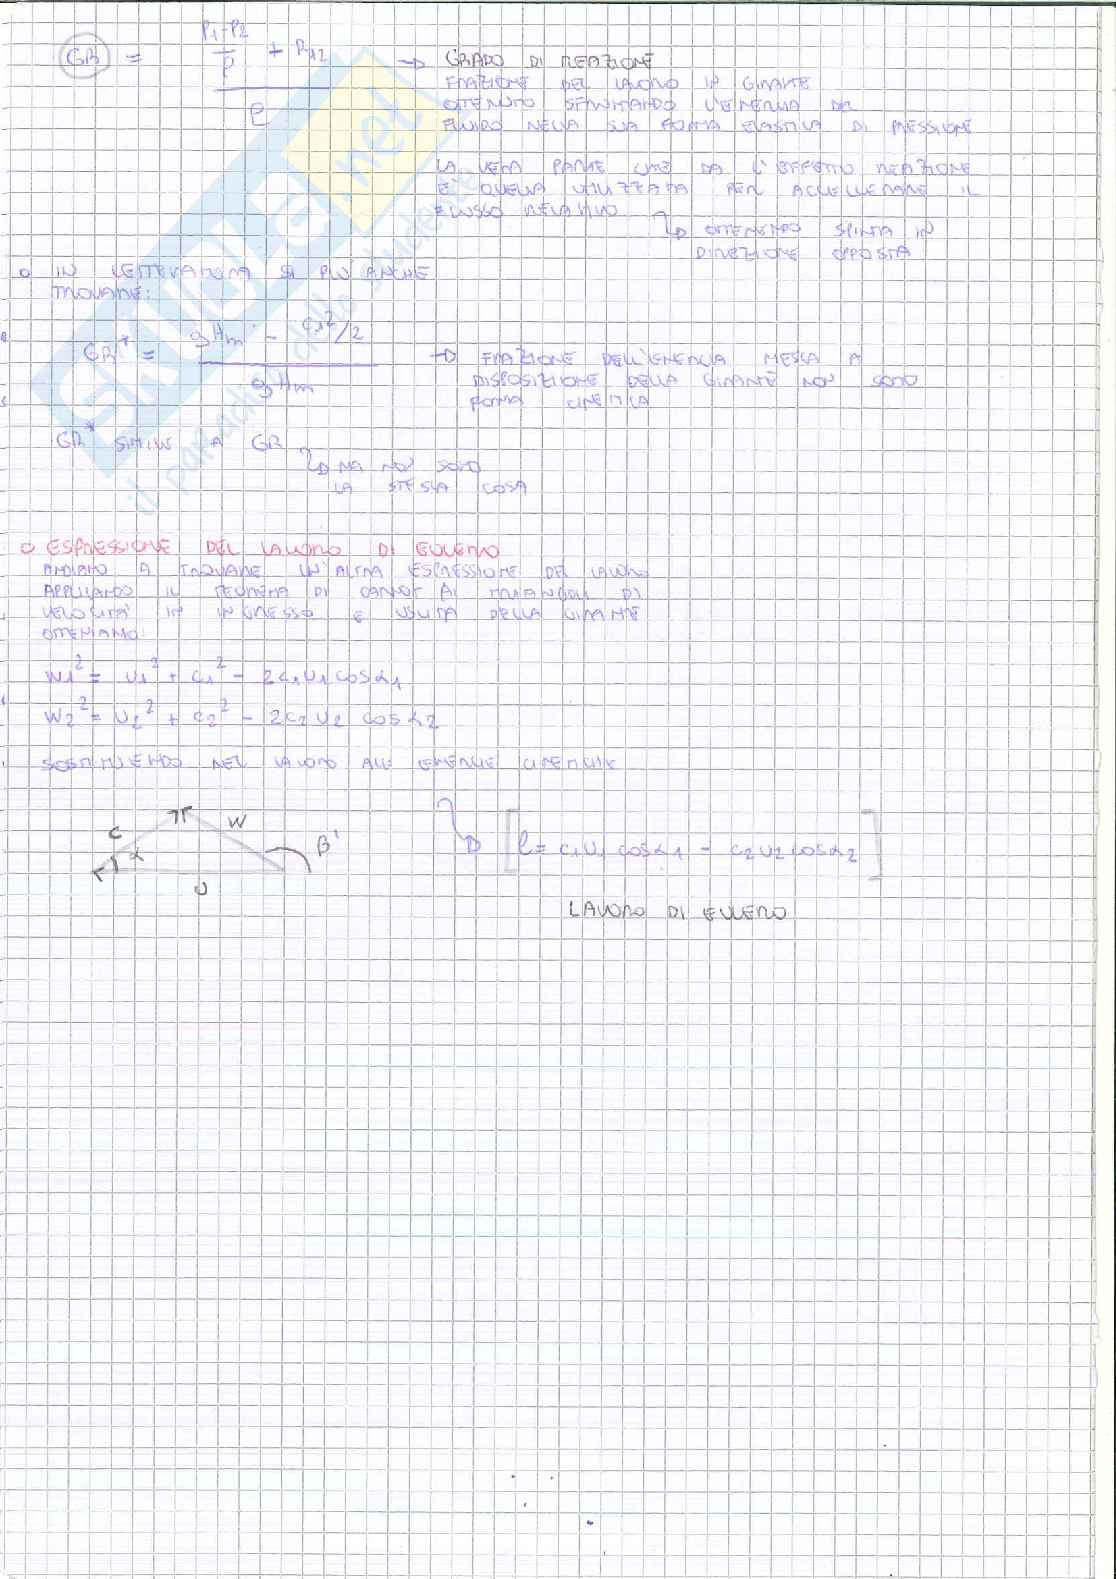 GR = (P1-P2 / ρ + R12) / l → GRADO DI REAZIONE
FRAZIONE DEL LAVORO IN GIRANTE
OTTENUTO SFRUTTANDO L'ENERGIA DEL
FLUIDO NELLA SUA FORMA ELASTICA DI PRESSIONE
LA VERA PARTE CHE DA L'EFFETTO REAZIONE
E' QUELLA UTILIZZATA PER ACCELLERARE IL
FLUSSO RELATIVO
OTTENENDO SPINTA IN
DIREZIONE OPPOSTA
o IN LETTERATURA SI PUÒ ANCHE
TROVARE:
GR* = (gHm - c1²/2) / gHm → FRAZIONE DELL'ENERGIA MESSA A
DISPOSIZIONE DELLA GIRANTE NON SOTTO
FORMA CINETICA
GR* SIMILE A GR
MA NON SONO
LA STESSA COSA
o ESPRESSIONE DEL LAVORO DI EULERO
ANDIAMO A TROVARE UN'ALTRA ESPRESSIONE DEL LAVORO
APPLICANDO IL TEOREMA DI CARNOT AI TRIANGOLI DI
VELOCITÀ IN INGRESSO E USCITA DELLA GIRANTE
OTTENIAMO:
w1² = u1² + c1² - 2c1u1 cosα1
w2² = u2² + c2² - 2c2u2 cosα2
SOSTITUENDO NEL LAVORO ALLE ENERGIE CINETICHE
C α W β' U
[l = c1u1 cosα1 - c2u2 cosα2]
LAVORO DI EULERO
SKUOLA.net
il paradiso dello studente